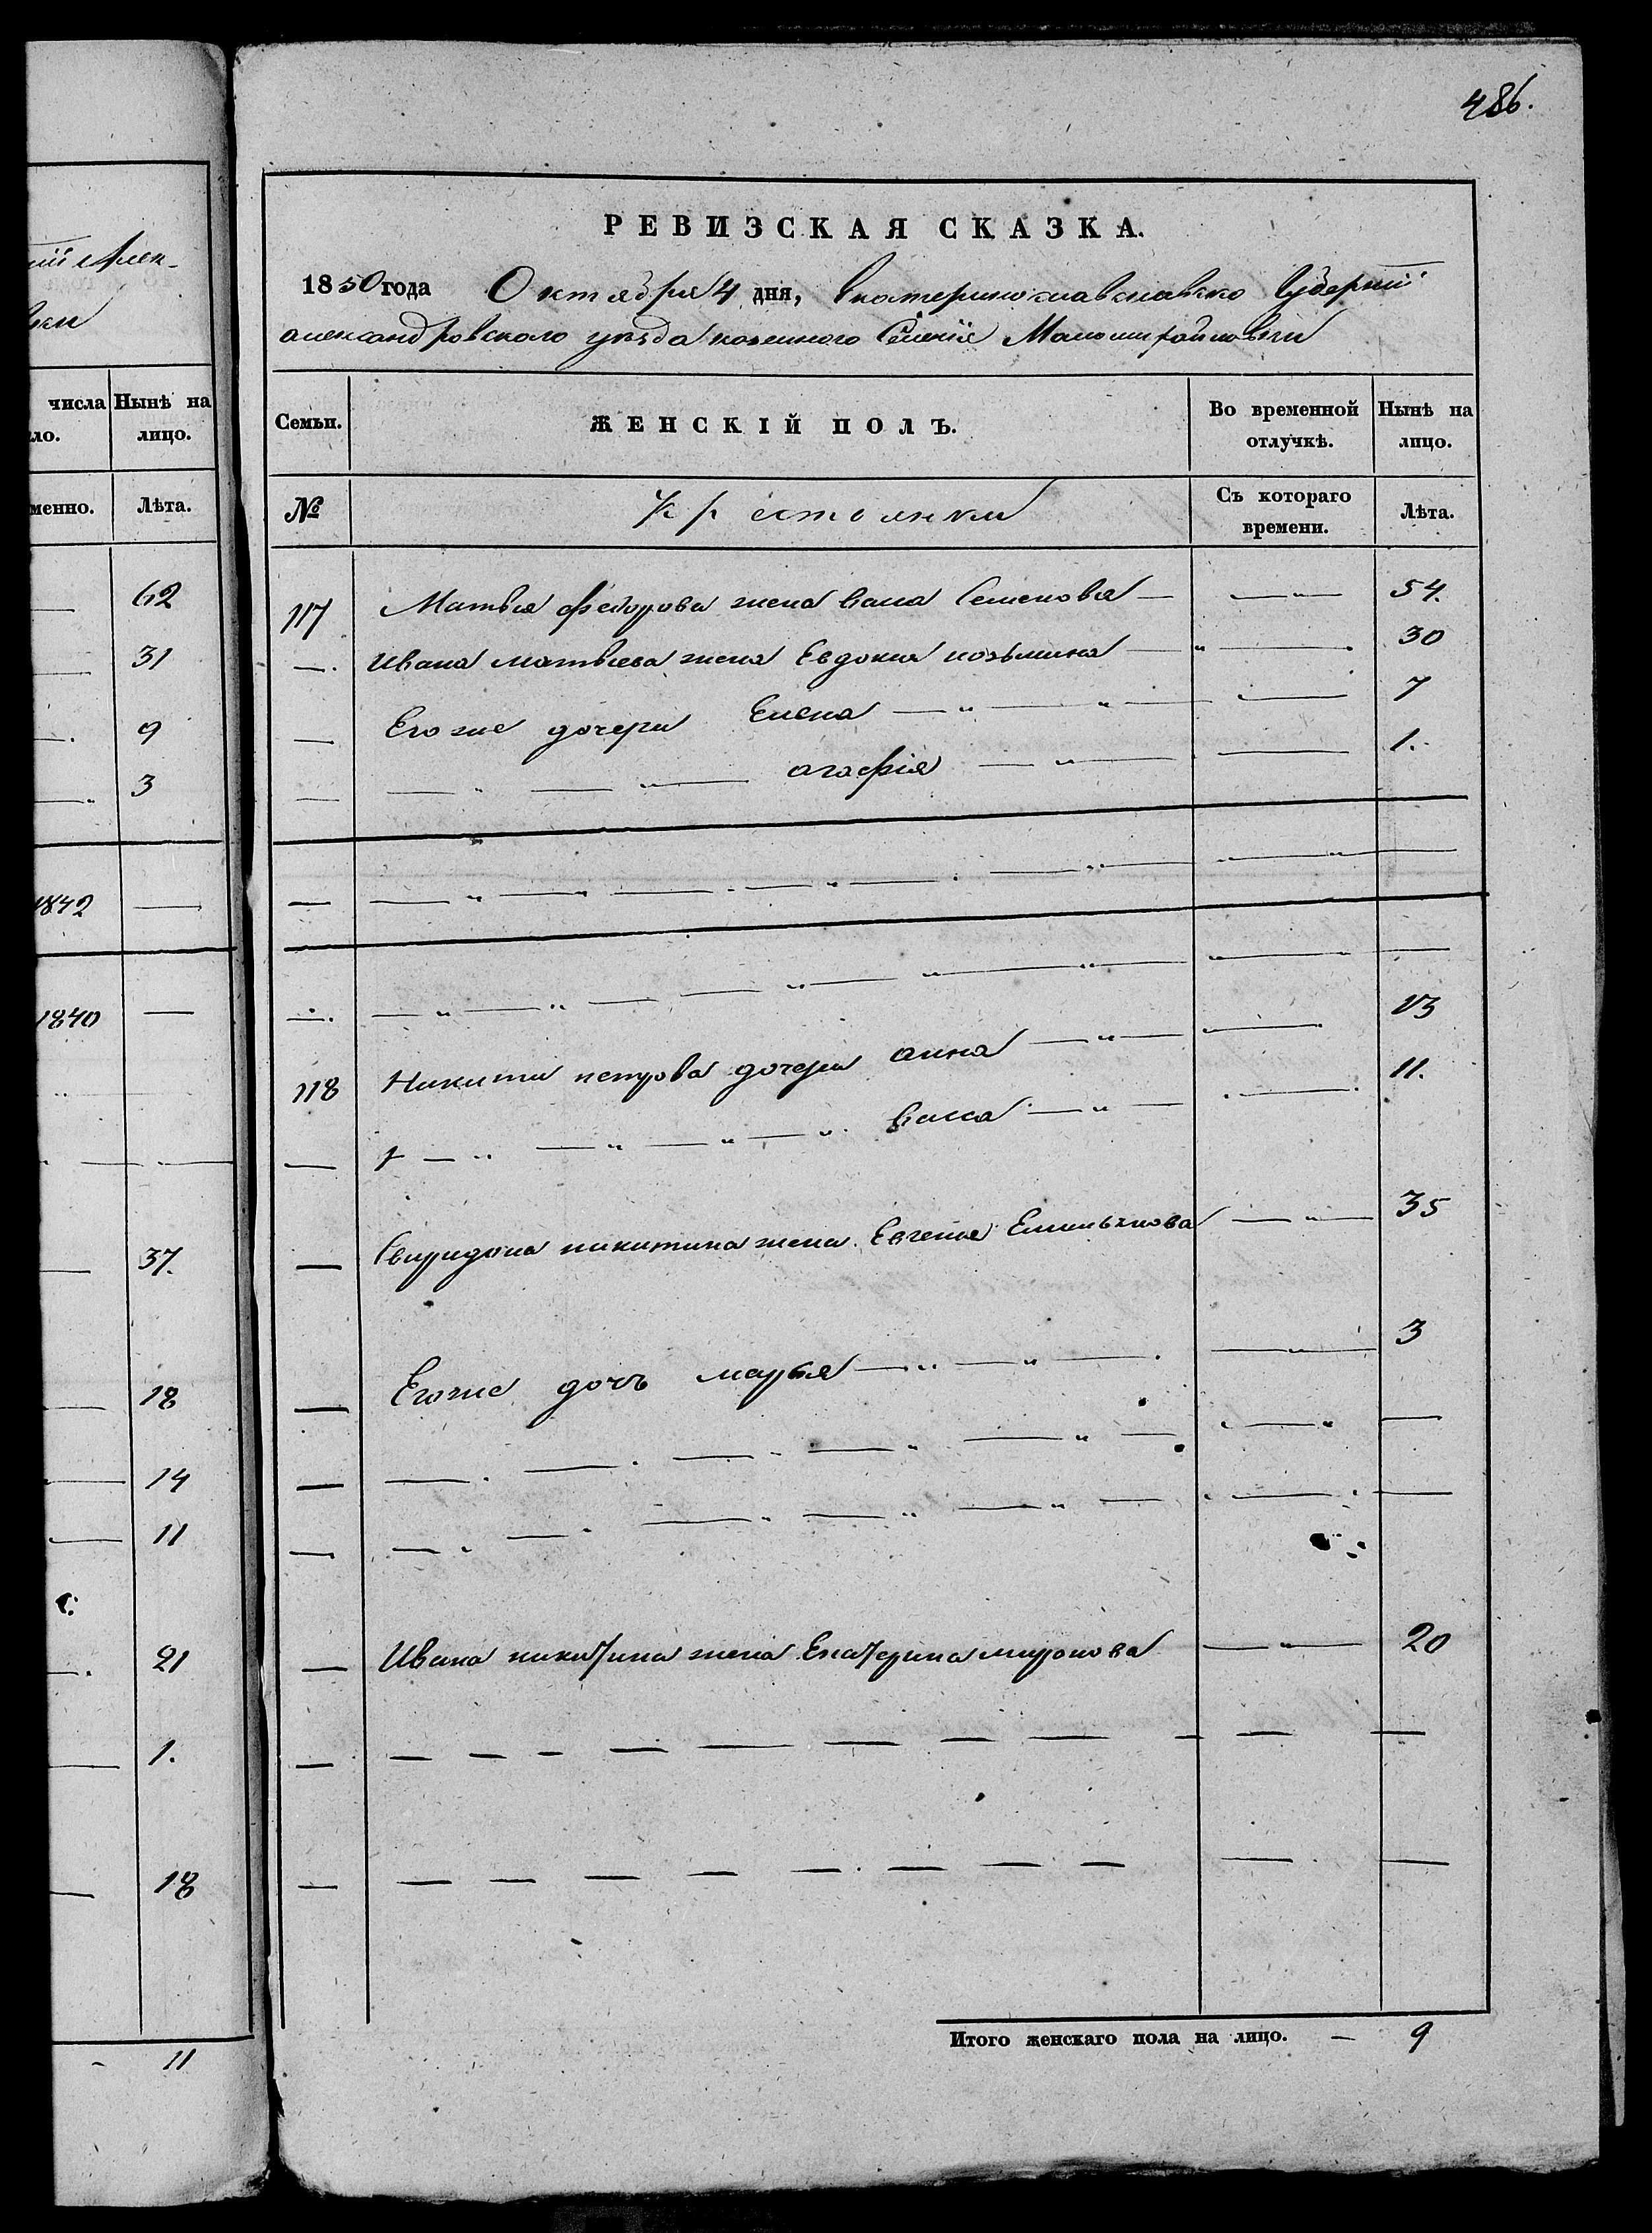 486.
ій Алек-
РЕВИЗСКАЯ СКАЗКА.
1850 года Октября 4 дня, Екатеринославславско Губерніи
александровского уезда казенного Селенія Маломихайловки
числа Нынѣ на
ло. лицо.
менно. Лѣта.
62
31
9
3
1842 —
1840 —
37.
18
14
11
21
1.
18
11
Семьи. ЖЕНСКІЙ ПОЛЪ. Во временной отлучкѣ. Нынѣ на лицо.
№ Крестьянки Съ котораго времени. Лѣта.
117 Матвея федорова жена васа Семенова — 54.
— Ивана матвеева жена Евдокия козьмина — 30
— Егоже дочери Елена — 7
— агафія — 1.
118 Никити петрова дочери анна — 13
— васса — 11.
— Свиридона никитина жена Евгения — 35
— Егоже дочь марья — 3
— Ивана никитина жена Екатерина миронова — 20
Итого женскаго пола на лицо. — 9